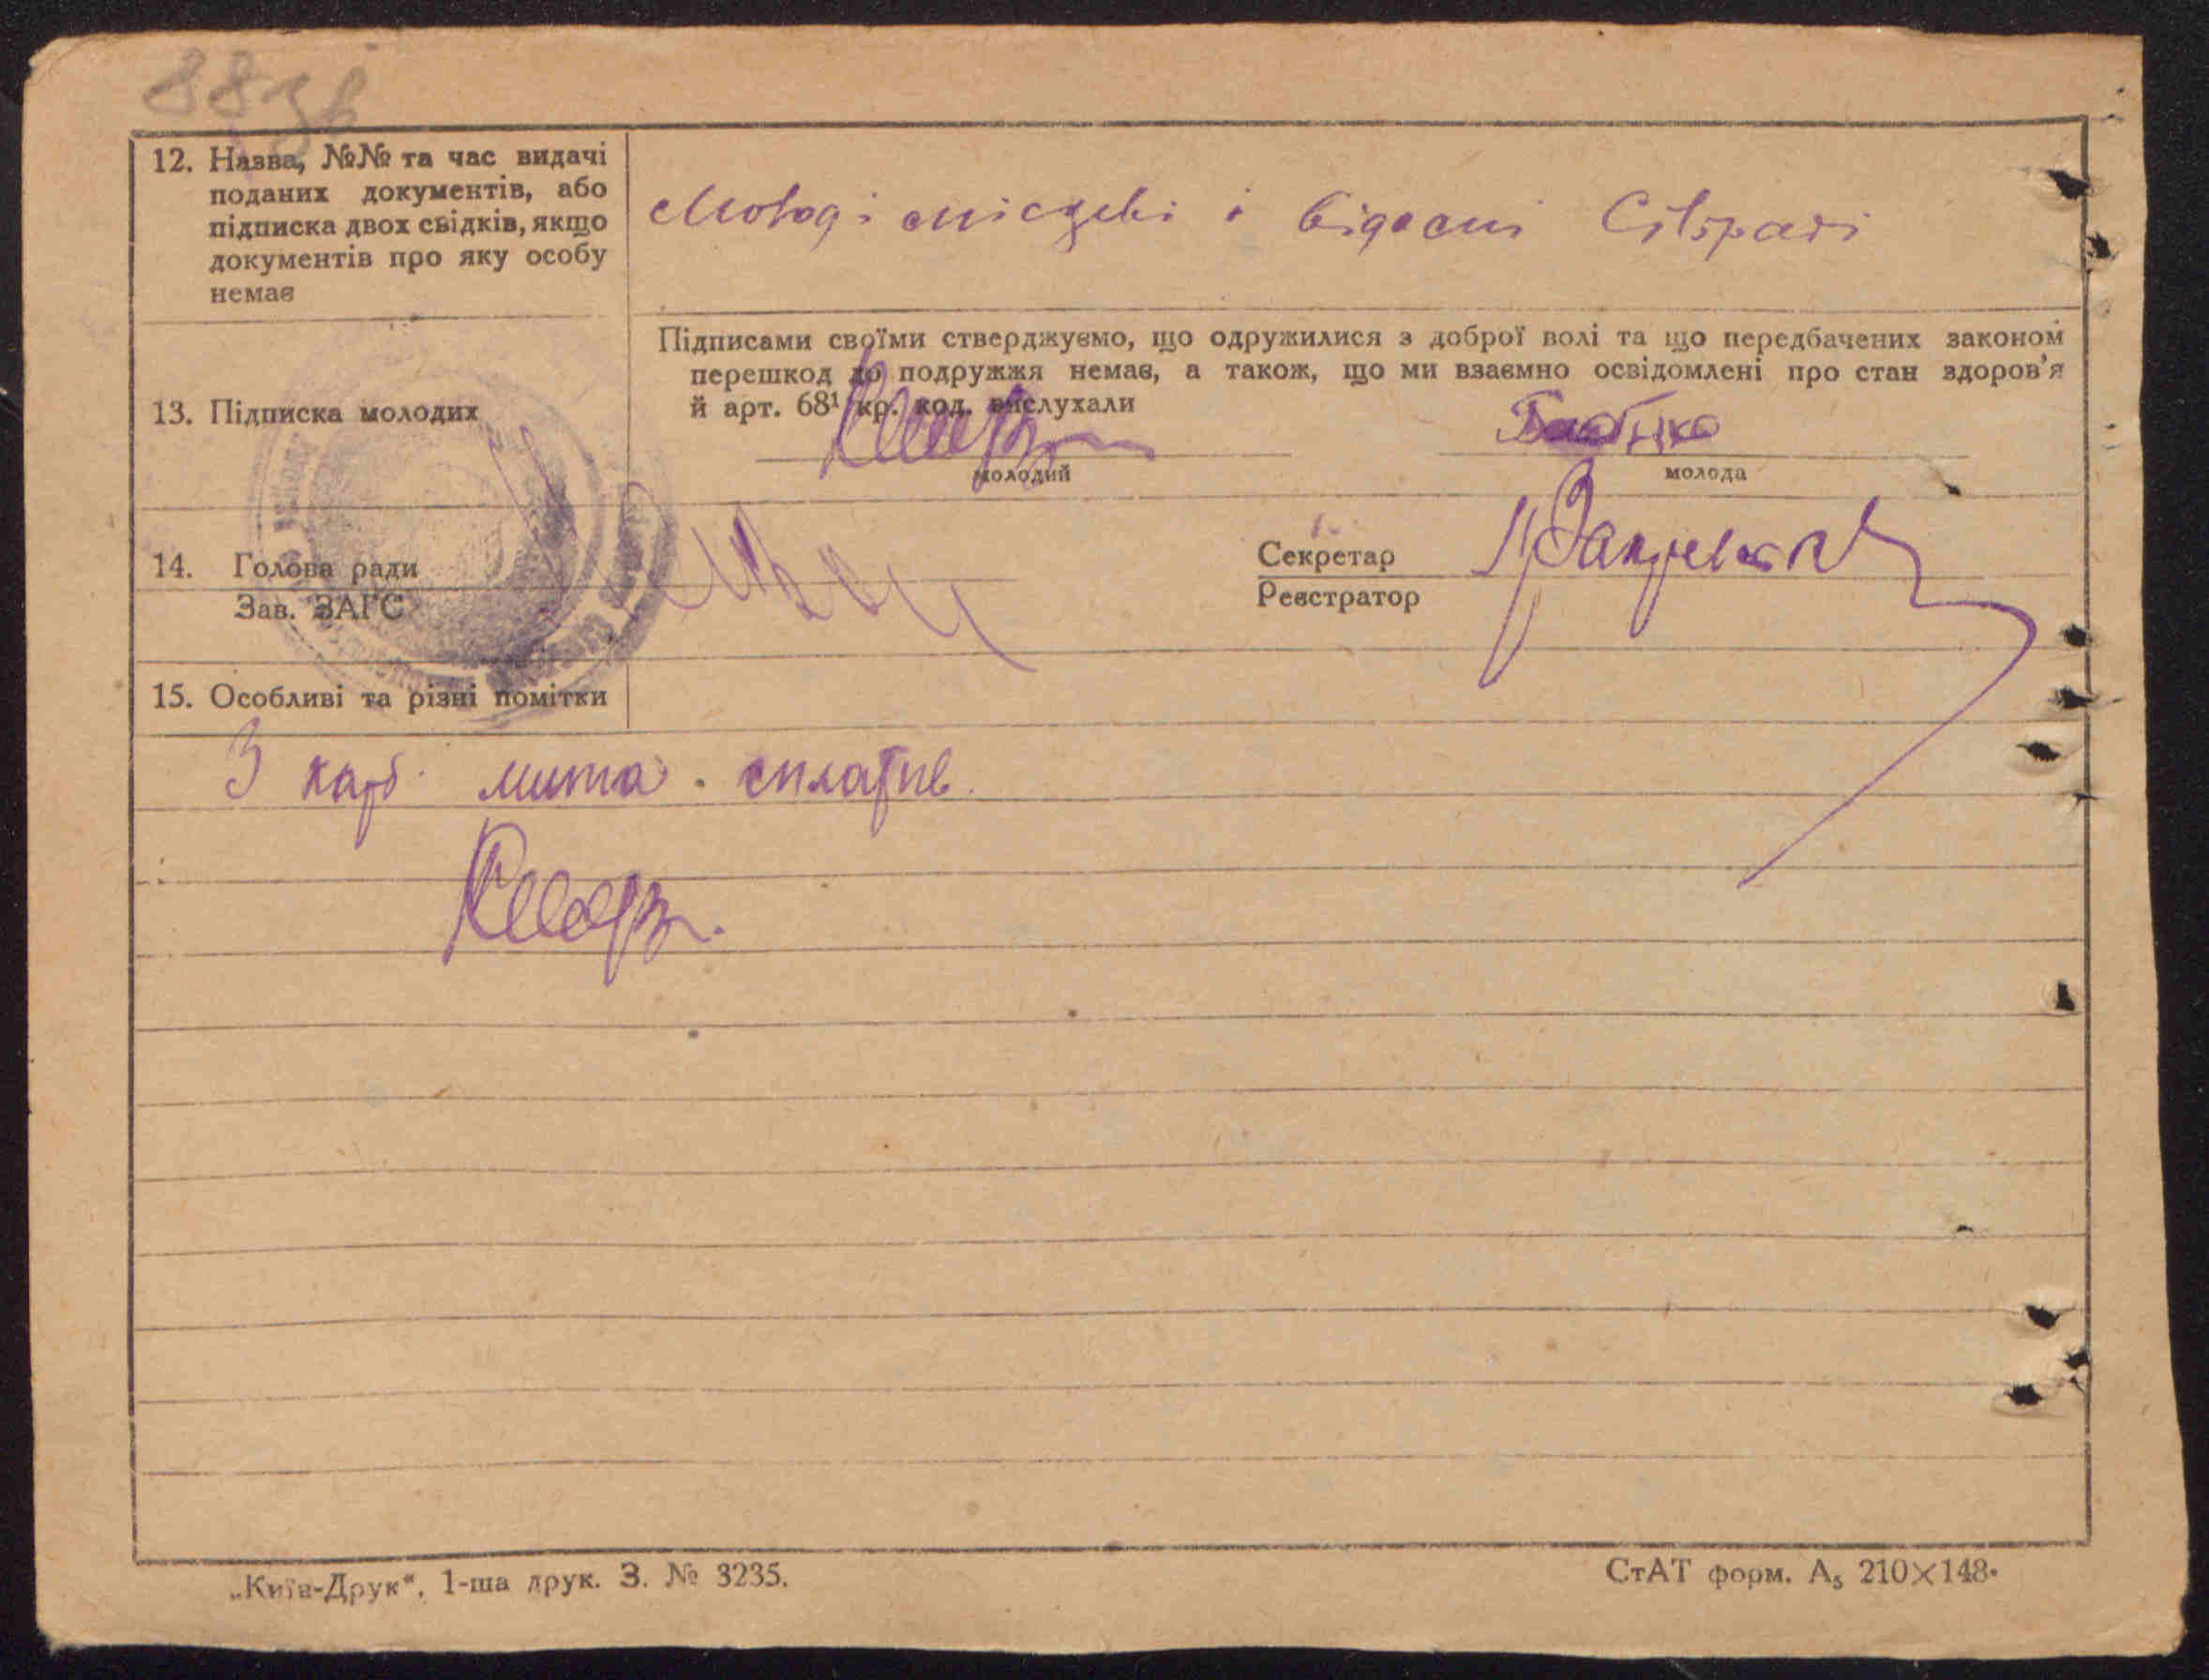 88зв
12. Назва, №№ та час видачі
поданих документів, або
підписка двох свідків, якщо
документів про яку особу
немає
Молоді місцеві і відомі Сільраді
Підписами своїми стверджуємо, що одружилися з доброї волі та що передбачених законом
перешкод до подружжя немає, а також, що ми взаємно освідомлені про стан здоров'я
й арт. 68¹ кр. код. вислухали
13. Підписка молодих
молодий
молода
14. Голова ради
Зав. ЗАГС
Секретар
Реєстратор
15. Особливі та різні помітки
3 карб. мита сплатив.
„Київ-Друк", 1-ша друк. З. № 3235.
СтАТ форм. А₅ 210×148.